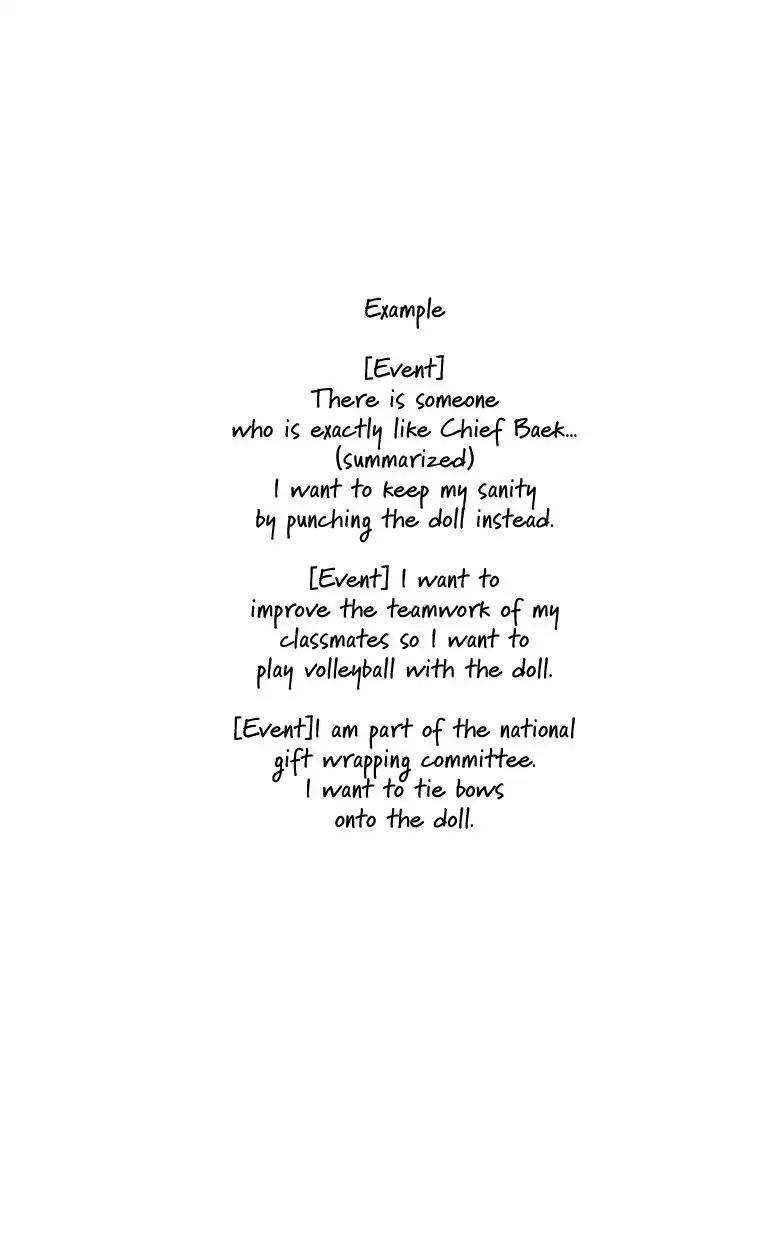 Example
[Event]
There is someone
who is exactly like Chief Baek...
(summarized)
I want to keep my sanity
by punching the doll instead.
[Event] I want to
improve the teamwork of my
classmates so I want to
play volleyball with the doll.
[Event]I am part of the national
gift wrapping committee.
I want to tie bows
onto the doll.